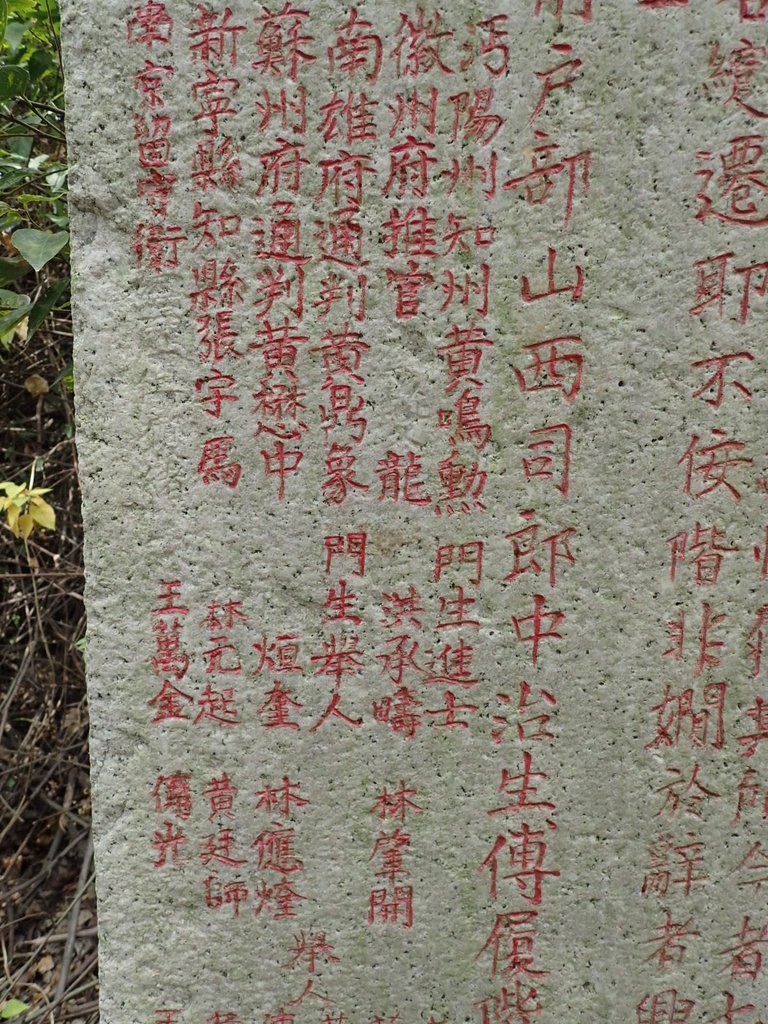 纔遷耶不佞階非嫺於辭者
戶部山西司郎中治生傅
沔陽州知州黃鳴勲 門生進士
徽州府推官 龍 洪承疇 林肇開
南雄府通判黃鼎象 門生舉人 舉人
蘇州府通判黃懋中 烜奎 林應煃
新寧縣知縣張宇 林元起 黃廷師
南京留守衛 王萬金 傅光